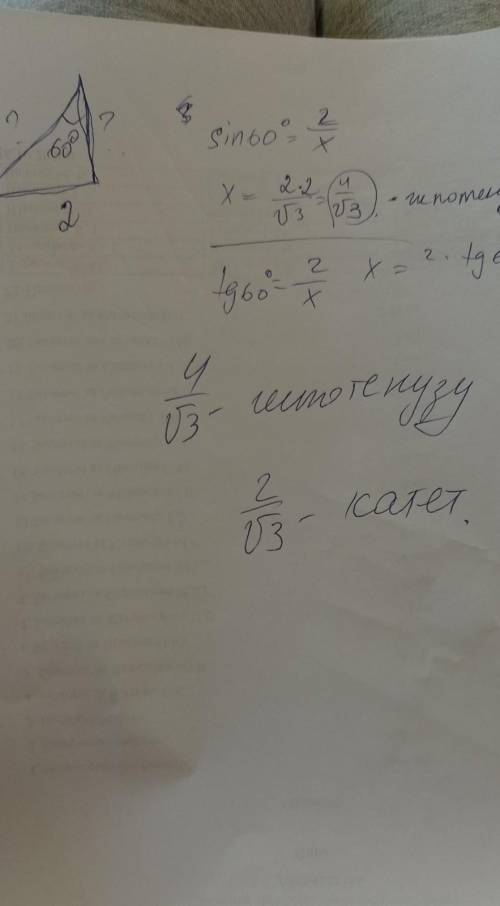 ? 60° ?
2
sin60° = 2/x
x = 2·2/√3 = 4/√3 -
tg60° = 2/x x = 2 · tg6
4/√3 - гипотенузу
2/√3 - катет.